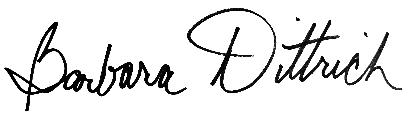 Barbara Dittrich